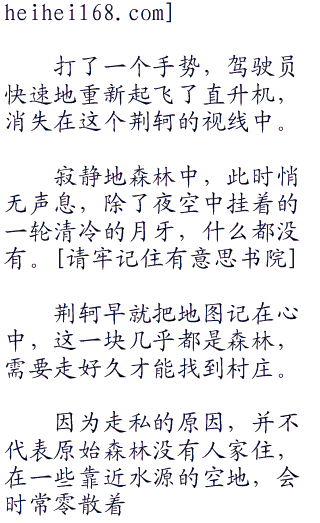 heihei168.com]
打了一个手势，驾驶员
快速地重新起飞了直升机，
消失在这个荆轲的视线中。
寂静地森林中，此时悄
无声息，除了夜空中挂着的
一轮清冷的月牙，什么都没
有。[请牢记住有意思书院]
荆轲早就把地图记在心
中，这一块几乎都是森林，
需要走好久才能找到村庄。
因为走私的原因，并不
代表原始森林没有人家住，
在一些靠近水源的空地，会
时常零散着